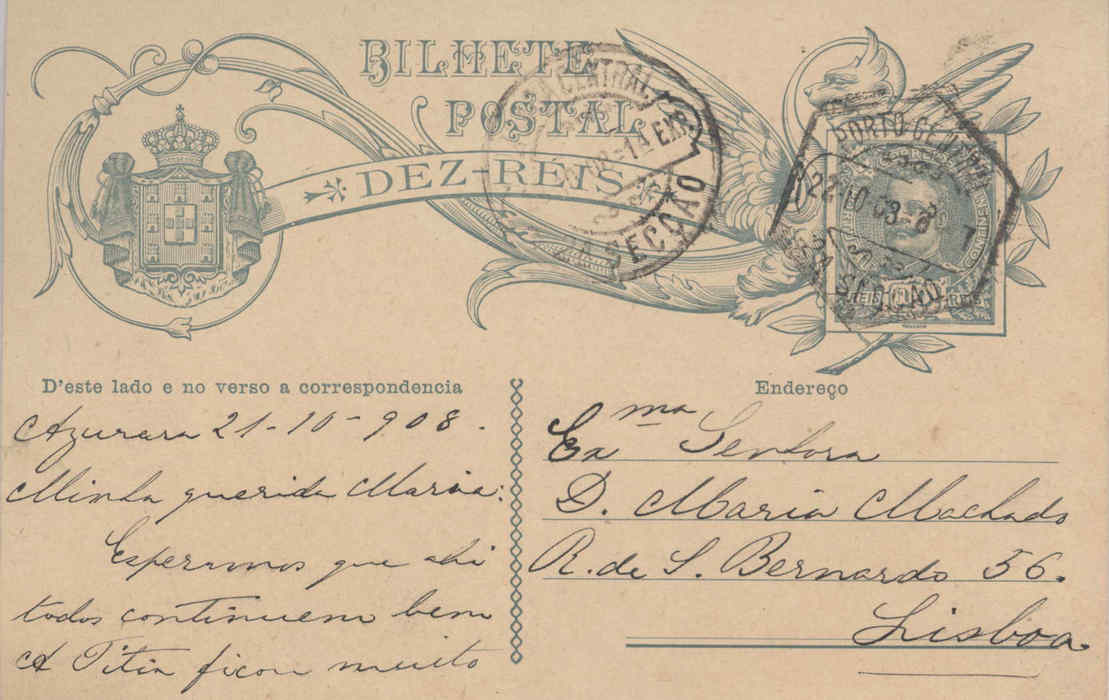 BILHETE
POSTAL
DEZ-REIS
CENTRAL
SECÇÃO
PORTO-CENTRAL
22 10 08
1ª SECÇÃO
REIS 10 REIS
D'este lado e no verso a correspondencia
Endereço
Azurara 21-10-908.
Minha querida Maria:
Esperamos que ahi
todos continuem bem
A Titia ficou muito
Exma Senhora
D. Maria Machado
R. de S. Bernardo 56.
Lisboa.